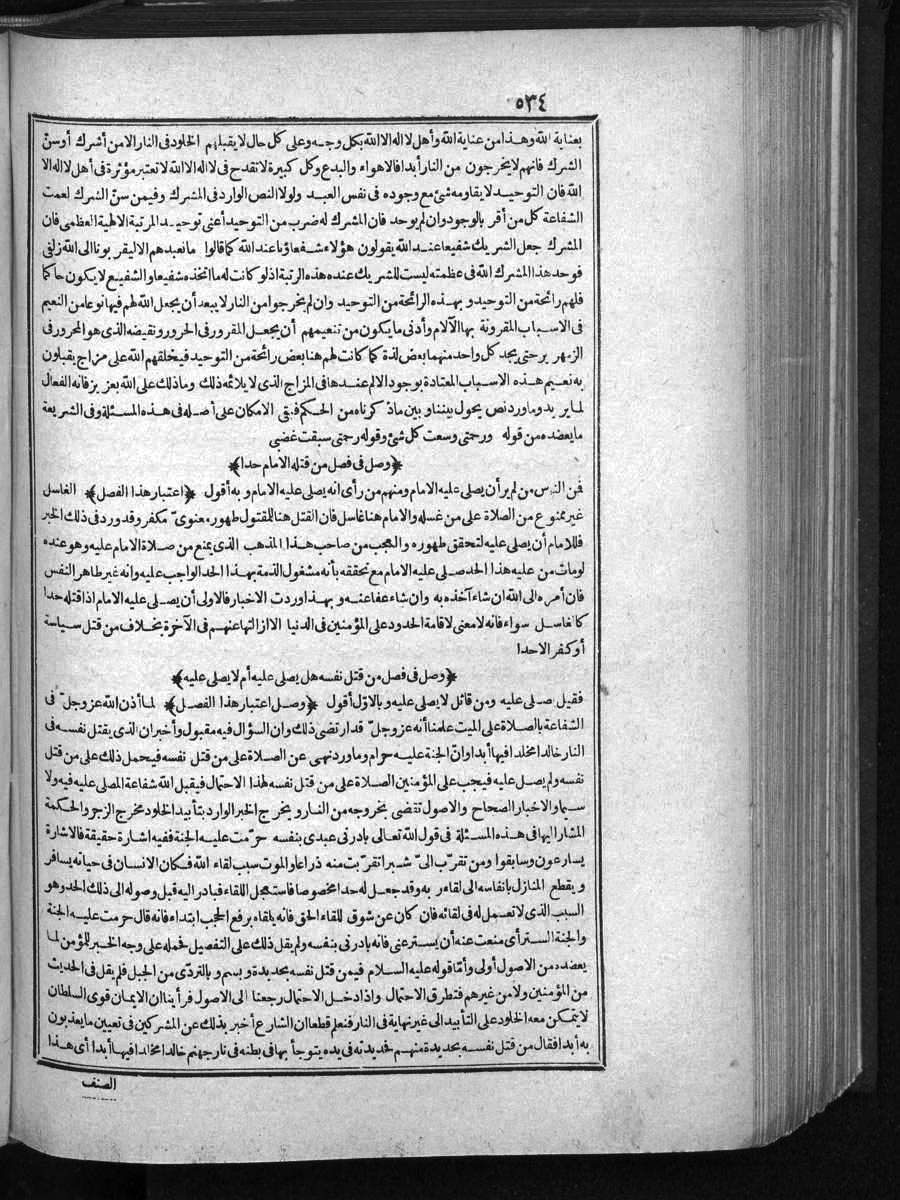 ٥٣٤
بعناية الله وهذا من عناية الله وأهل لا اله الا الله بكل وجه وعلى كل حال لا يقبلهم الخلود فى النار الا من أشرك أوسنّ
الشرك فانهم لا يخرجون من النار أبدا فالاهواء والبدع وكل كبيرة لا تقدح فى لا اله الا الله لا تعتبر مؤثرة فى أهل لا اله الا
الله فان التوحيد لا يقاومه شئ مع وجوده فى نفس العبد ولولا النص الوارد فى المشرك وفيمن سنّ الشرك لعمت
الشفاعة كل من أقر بالوجود وان لم يوحد فان المشرك له ضرب من التوحيد أعنى توحيد المرتبة الالهية العظمى فان
المشرك جعل الشريك شفيعا عند الله يقولون هؤلاء شفعاؤنا عند الله كما قالوا ما نعبدهم الا ليقربونا الى الله زلفى
فوحد هذا المشرك الله فى عظمته ليست للشريك عنده هذه الرتبة اذ لو كانت له ما اتخذه شفيعا والشفيع لا يكون حاكما
فلهم رائحة من التوحيد وبهذه الرائحة من التوحيد وان لم يخرجوا من النار لا يبعد أن يجعل الله لهم فيها نوعا من النعيم
فى الاسباب المقرونة بها الآلام وأدنى ما يكون من تنعيمهم أن يجعل المقرور فى الحرور ونقيضه الذى هو المحرور فى
الزمهرير حتى يجد كل واحد منهما بعض لذة كما كانت لهم هنا بعض رائحة من التوحيد فيخلقهم الله على مزاج يقبلون
به نعيم هذه الاسباب المعتادة بوجود الالم عندها فى المزاج الذى لا يلائمه ذلك وما ذلك على الله بعزيز فانه الفعال
لما يريد وما ورد نص يحول بيننا وبين ماذكرناه من الحكم فبقى الامكان على أصله فى هذه المسئلة وفى الشريعة
ما يعضده من قوله ورحمتى وسعت كل شئ وقوله رحمتى سبقت غضبى
﴿وصل فى فصل من قتله الامام حدا﴾
فمن الناس من لم ير أن يصلى عليه الامام ومنهم من رأى انه يصلى عليه الامام وبه أقول ﴿اعتبار هذا الفصل﴾ الغاسل
غير ممنوع من الصلاة على من غسله والامام هنا غاسل فان القتل هنا للمقتول طهور معنوىّ مكفر وقد ورد فى ذلك الخبر
فللامام أن يصلى عليه لتحقق طهوره والعجب من صاحب هذا المذهب الذى يمنع من صلاة الامام عليه وهو عنده
لو مات من عليه هذا الحد صلى عليه الامام مع تحققه بأنه مشغول الذمة بهذا الحد الواجب عليه وانه غير طاهر النفس
فان أمره الى الله ان شاء آخذه به وان شاء عفا عنه وبهذا وردت الاخبار فالاولى أن يصلى عليه الامام اذا قتله حدا
كالغاسل سواء فانه لا معنى لاقامة الحدود على المؤمنين فى الدنيا الا ازالتها عنهم فى الآخرة بخلاف من قتل سياسة
أو كفر الاحدا
﴿وصل فى فصل من قتل نفسه هل يصلى عليه أم لا يصلى عليه﴾
فقيل صلى عليه ومن قائل لا يصلى عليه وبالاوّل أقول ﴿وصل اعتبار هذا الفصل﴾ لما أذن الله عز وجلّ فى
الشفاعة بالصلاة على الميت علمنا أنه عز وجلّ قد ارتضى ذلك وان السؤال فيه مقبول وأخبر ان الذى يقتل نفسه فى
النار خالدا مخلدا فيها أبدا وانّ الجنة عليه حرام وما ورد نهى عن الصلاة على من قتل نفسه فيحمل ذلك على من قتل
نفسه ولم يصل عليه فيجب على المؤمنين الصلاة على من قتل نفسه لهذا الاحتمال فيقبل الله شفاعة المصلى عليه فيه ولا
سيما والاخبار الصحاح والاصول تقضى بخروجه من النار ويخرج الخبر الوارد بتأبيد الخلود مخرج الزجر والحكمة
المشار اليها فى هذه المسئلة فى قول الله تعالى بادرنى عبدى بنفسه حرّمت عليه الجنة ففيه اشارة حقيقة فالاشارة
يسارعون وسابقوا ومن تقرّب الىّ شبرا تقرّبت منه ذراعا والموت سبب لقاء الله فكان الانسان فى حياته يسافر
ويقطع المنازل بانفاسه الى لقاء ربه وقد جعل له حدا مخصوصا فاستعجل اللقاء فبادر اليه قبل وصوله الى ذلك الحد وهو
السبب الذى لا تعمل له فى لقائه فان كان عن شوق للقاء الحق فانه يلقاه برفع الحجب ابتداء فانه قال حرمت عليه الجنة
والجنة الستر أى منعت عنه أن يستر عنى فانه بادرنى بنفسه ولم يقل ذلك على التفصيل فحمله على وجه الخبر للمؤمن لما
يعضده من الاصول أولى وأمّا قوله عليه السلام فيمن قتل نفسه بحديدة وبسم وبالتردّى من الجبل فلم يقل فى الحديث
من المؤمنين ولا من غيرهم فتطرق الاحتمال واذا دخل الاحتمال رجعنا الى الاصول فرأينا ان الايمان قوى السلطان
لا يتمكن معه الخلود على التأبيد الى غير نهاية فى النار فنعلم قطعا ان الشارع أخبر بذلك عن المشركين فى تعيين ما يعذبون
به أبدا فقال من قتل نفسه بحديدة منهم فحديدته فى يده يتوجأ بها فى بطنه فى نار جهنم خالدا مخلدا فيها أبدا أى هذا
الصنف